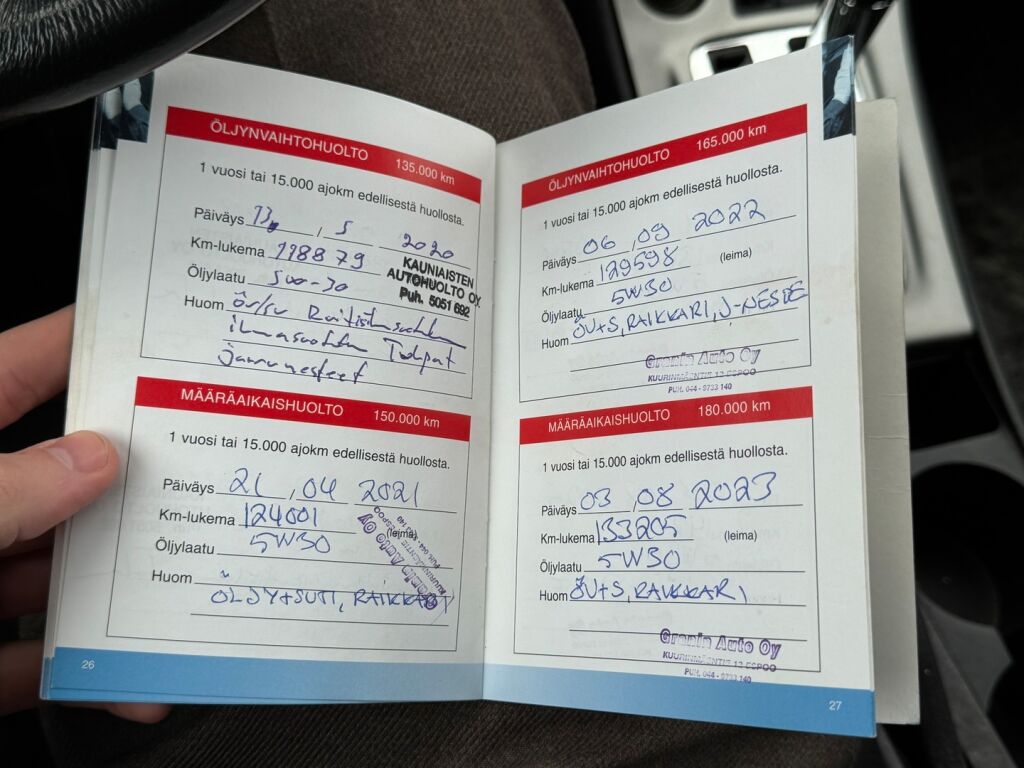 ÖLJYNVAIHTOHUOLTO 135.000 km
1 vuosi tai 15.000 ajokm edellisestä huollosta.
Päiväys 13, 5 2020
Km-lukema 118879
KAUNIAISTEN
AUTOHUOLTO OY
Puh. 5051 692
Öljylaatu 5w-30
Huom öv/sv Raitisilmasuodatin
ilmasuodatin Tulpat
jarrunesteet
MÄÄRÄAIKAISHUOLTO 150.000 km
1 vuosi tai 15.000 ajokm edellisestä huollosta.
Päiväys 21, 04 2021
Km-lukema 124001 (leima)
Öljylaatu 5W30
Gronin Auto Oy
Huom
ÖLJY+SUTI, RAIKKARI
26
ÖLJYNVAIHTOHUOLTO 165.000 km
1 vuosi tai 15.000 ajokm edellisestä huollosta.
Päiväys 06, 09 2022
Km-lukema 129598 (leima)
Öljylaatu 5W30
Huom ÖV+S, RAIKKARI, J-NESTE
Gronin Auto Oy
KUURINMÄENTIE 12 ESPOO
PUH. 044 - 9733 140
MÄÄRÄAIKAISHUOLTO 180.000 km
1 vuosi tai 15.000 ajokm edellisestä huollosta.
Päiväys 03, 08 2023
Km-lukema 133205 (leima)
Öljylaatu 5W30
Huom ÖV+S, RAIKKARI
Gronin Auto Oy
KUURINMÄENTIE 12 ESPOO
PUH. 044 - 9733 140
27